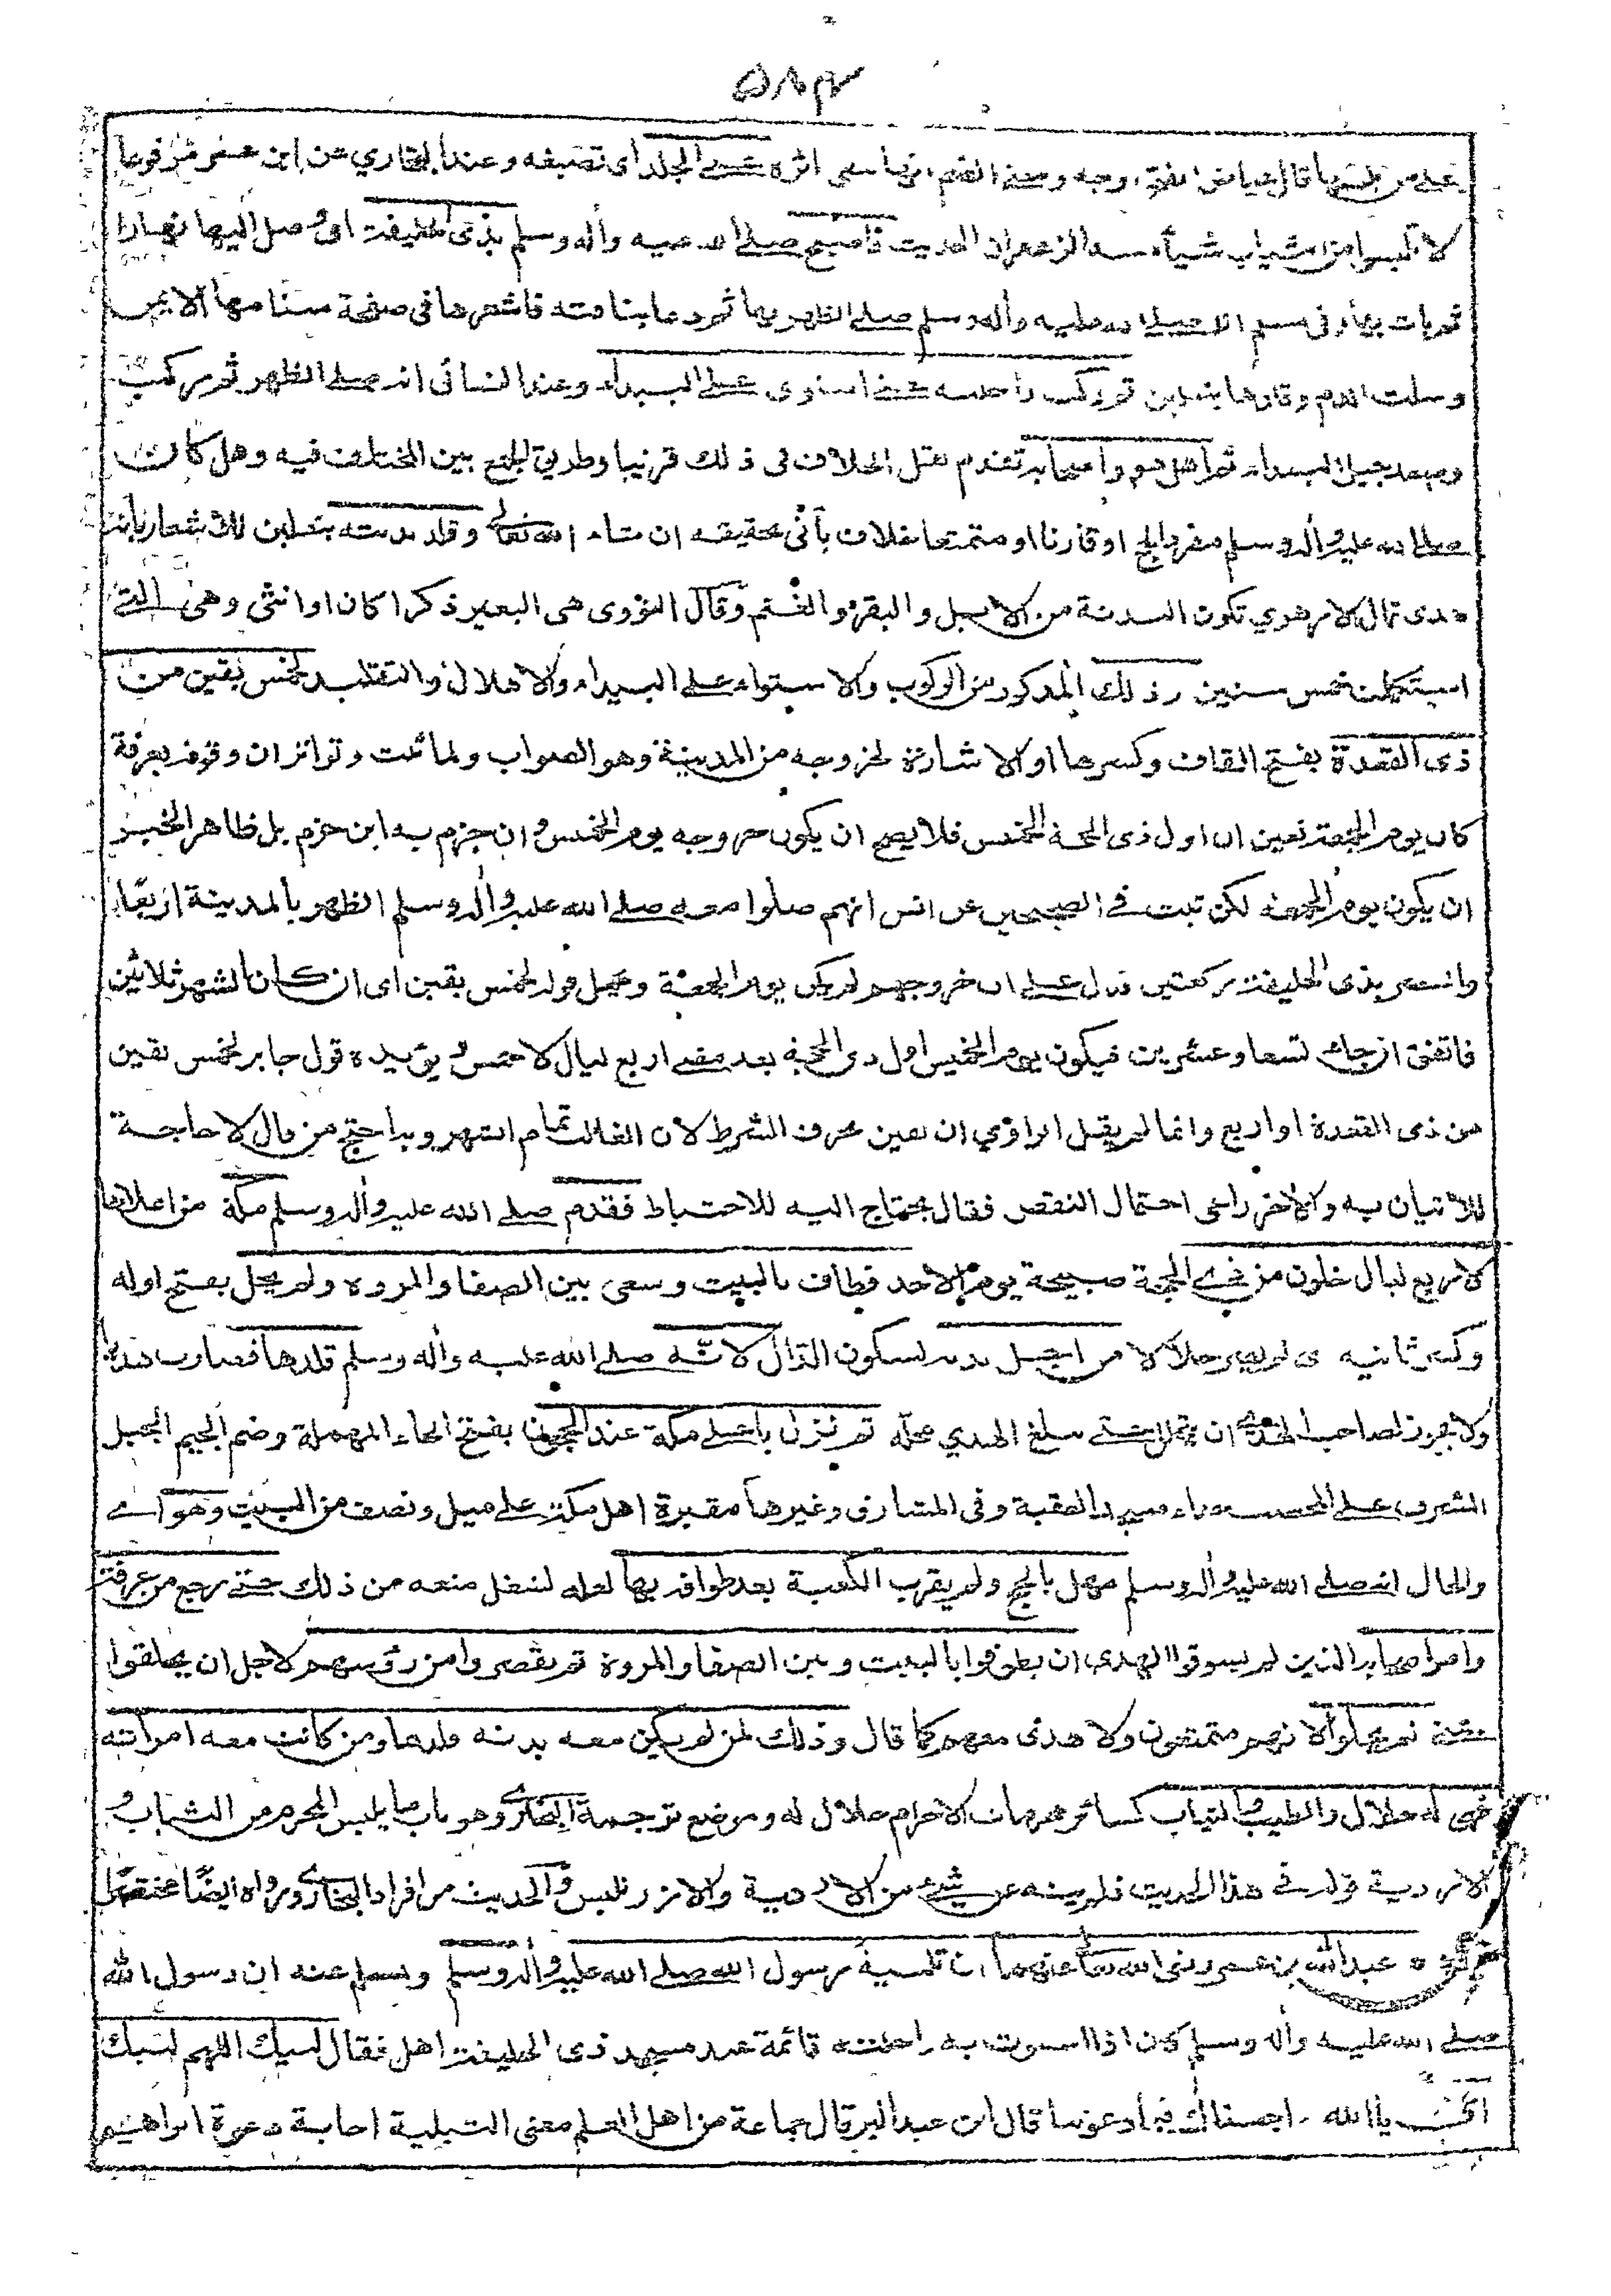 ٥٨٣
قال عياض الفتح اوجه ومعنى الضم اثره على الجلد اى تصبغه وعند البخاري عن ابن عمر مرفوعا
لا تلبسوا من الثياب شيأ الزعفران الحديث فاصبح صلى الله عليه وأله وسلم بذى الحليفة اى وصل اليها نهارا
ثم بات بها وفى مسلم انه صلى الله عليه وأله وسلم صلى الظهر بها ثم دعا بناقته فاشعرها فى صفحة سنامها الايمن
وسلت الدم وقلدها بنعلين ثم ركب راحلته حتى استوى على البيداء وعند النسائى انه صلى الظهر ثم ركب
وصعد جبل البيداء ثم اهل هو واصحابه تقدم نقل الخلاف فى ذلك قريبا وطريق الجمع بين المختلف فيه وهل كان
صلى الله عليه وأله وسلم مفردا بالحج او قارنا او متمتعا خلاف يأتى تحقيقه ان شاء الله تعالى وقلد بدنته بنعلين للاشعار بانه
هدى قال الازهري تكون البدنة من الابل والبقر والغنم وقال النووى هى البعير ذكرا كان او انثى وهى التى
استكملت خمس سنين وذلك المذكور من الركوب والاستواء على البيداء والاهلال والتقليد لخمس بقين من
ذى القعدة بفتح القاف وكسرها او الاشارة لخروجه من المدينة وهو الصواب ولما ثبت وتواتر ان وقوفه بعرفة
كان يوم الجمعة تعين ان اول ذى الحجة الخميس فلا يصح ان يكون خروجه يوم الخميس وان جزم به ابن حزم بل ظاهر الخبر
ان يكون يوم الجمعة لكن ثبت فى الصحيحين عن انس انهم صلوا معه صلى الله عليه وأله وسلم الظهر بالمدينة اربعا
والعصر بذى الحليفة ركعتين فدل على ان خروجهم لم يكن يوم الجمعة وتحمل قوله لخمس بقين اى ان كان الشهر ثلاثين
فاتفق ان جاء تسعا وعشرين فيكون يوم الخميس اول ذى الحجة بعد مضى اربع ليال لا خمس ويؤيده قول جابر لخمس بقين
من ذى القعدة او اربع وانما لم يقل الراوي ان بقين بحرف الشرط لان الغالب تمام الشهر وبه احتج من قال لا حاجة
للاتيان به والاخر راعى احتمال النقص فقال يحتاج اليه للاحتياط فقدم صلى الله عليه وأله وسلم مكة من اعلاها
لاربع ليال خلون من ذى الحجة صبيحة يوم الاحد فطاف بالبيت وسعى بين الصفا والمروه ولم يحل بفتح اوله
وكسر ثانيه اى لم يصر حلالا من اجل بدنه بسكون الدال لانه صلى الله عليه وأله وسلم قلدها فصارت هديا
ولا يجوز لصاحب الهدى ان يتحلل حتى يبلغ الهدي محله ثم نزل باعلى مكة عند الحجون بفتح الحاء المهملة وضم الجيم الجبل
المشرف على المحصب حذاء مسجد العقبة وفى المشارق وغيرها مقبرة اهل مكة على ميل ونصف من البيت وهو اى
والحال انه صلى الله عليه وأله وسلم مهل بالحج ولم يقرب الكعبة بعد طوافه بها لعله لشغل منعه من ذلك حتى رجع من عرفة
وامر اصحابه الذين لم يسوقوا الهدى ان يطوفوا بالبيت وبين الصفا والمروة ثم يقصروا من رؤسهم لاجل ان يحلقوا
بمنى ثم يحلوا لانهم متمتعون ولا هدى معهم كما قال وذلك لمن لم يكن معه بدنة قلدها ومن كانت معه امرأته
فهى له حلال والطيب والثياب كسائر محرمات الاحرام حلال له وموضع ترجمة البخارى وهو باب ما يلبس المحرم من الثياب و
الاردية قوله فى هذا الحديث فلم ينه عن شيء من الاردية والازر تلبس والحديث من افراد البخارى ورواه ايضا مختصرا
عبد الله بن عمر رضى الله تعالى عنهما ان تلبية رسول الله صلى الله عليه وأله وسلم ولمسلم عنه ان رسول الله
صلى الله عليه وأله وسلم كان اذا استوت به راحلته قائمة عند مسجد ذى الحليفة اهل فقال لبيك اللهم لبيك
يا الله اجبناك فيما دعوتنا قال ابن عبد البر قال جماعة من اهل العلم معنى التلبية اجابة دعوة ابراهيم